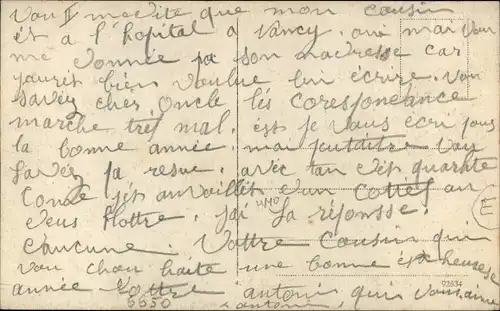 Vou medite que mon cousin
est a l'hopital a Nancy. oui mai vou
me donnée sa son madresse car
jauret bien voulue lui ecrire. Vou
Savez cher Oncle lés coresponeance
marche tres mal. est je vous ecri pous
la bonne année mai peutditre Vou
Savez sa resue. avec tan
Conte jét anvaillét d'un cottes an
deus Hottre. jai La réponsse.
caucune. Vottre Cousin qui
vou chou haite une bonne est heuese
année Vottre antoni qui vous aime
6650 antoni
92634
E